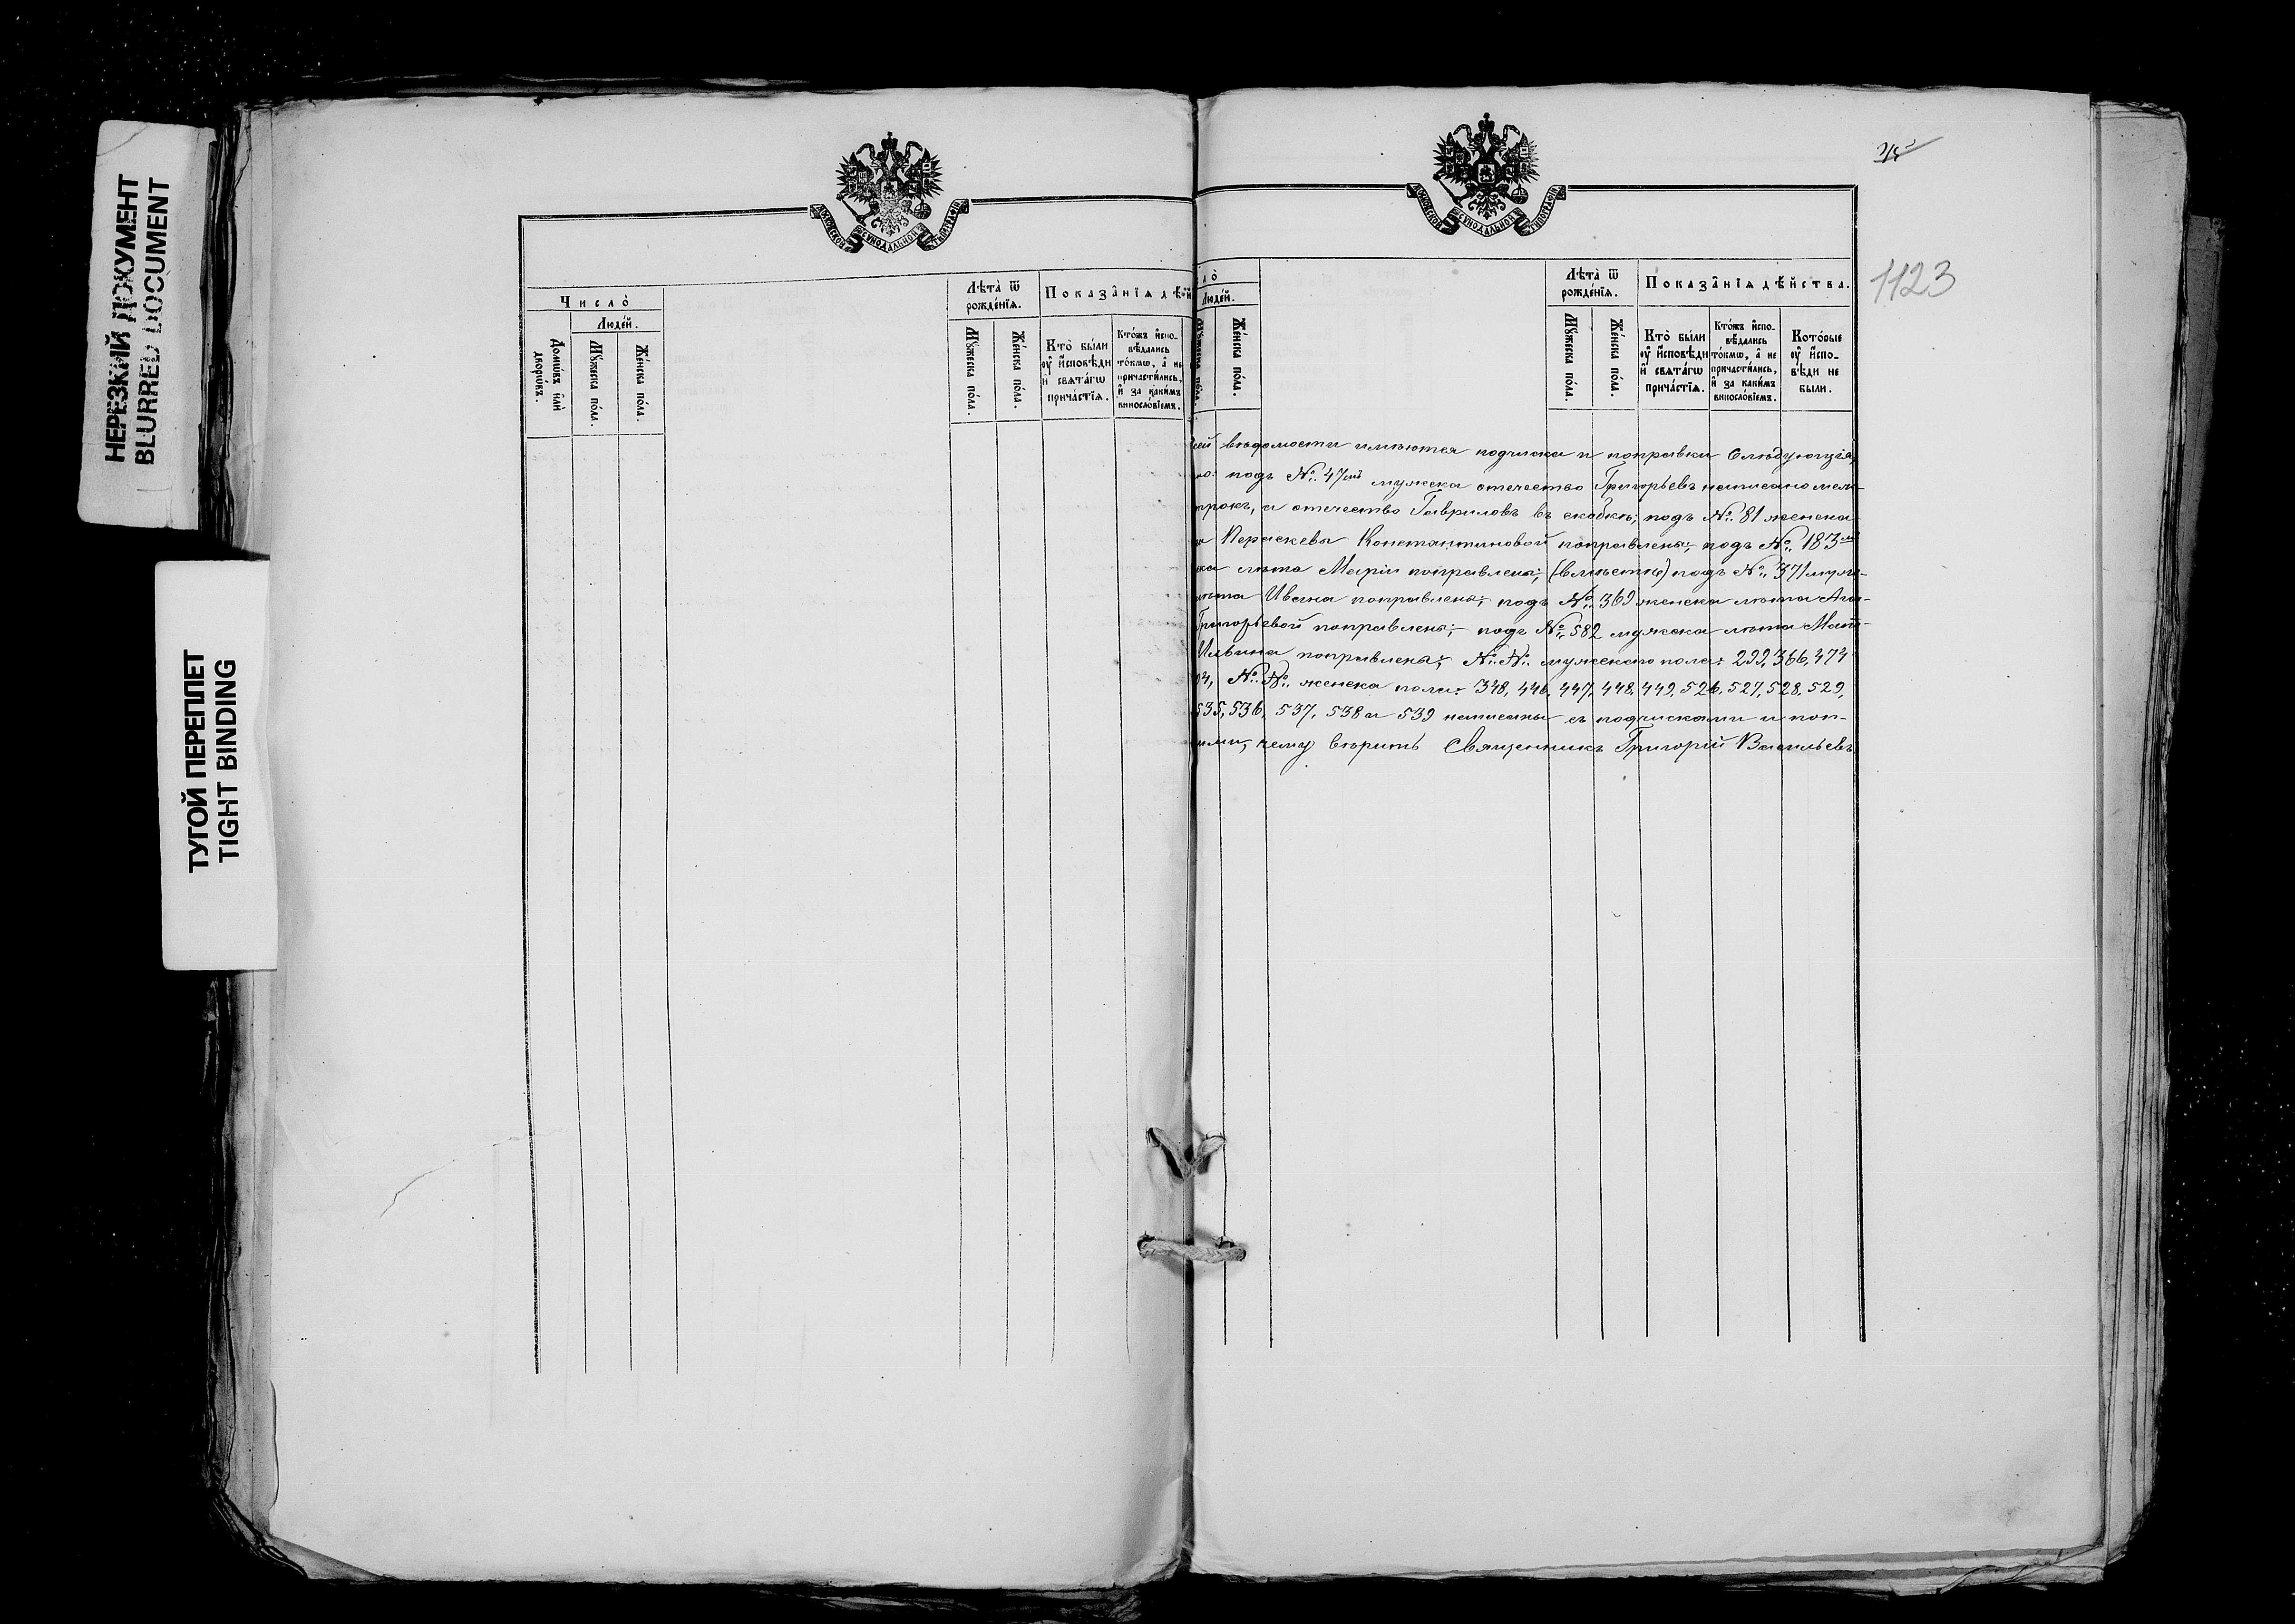 НЕРЕЗКИЙ ДОКУМЕНТ
BLURRED DOCUMENT
ТУГОЙ ПЕРЕПЛЕТ
TIGHT BINDING
МОСКОВСКОЙ СѴНОДАЛЬНОЙ ТИПОГРАФІИ
Число̀
Людей.
Домѡвъ и҆лѝ дворѡвъ.
Мꙋжеска по́ла.
Же́нска по́ла.
Лѣта̀ ѿ рожде́нїѧ.
Мꙋжеска по́ла.
Же́нска по́ла.
Показа̂нїѧ дѣй
Кто̀ бы́ли
ᲂу҆ и҆сповѣди
и҆ свѧта́гѡ
прича́стїѧ.
Кто́жъ и҆спо-
вѣдались
то́кмѡ, а҆ не
причасти́лись,
и҆ за каки́мъ
винослов́їемъ.
МОСКОВСКОЙ СѴНОДАЛЬНОЙ ТИПОГРАФІИ
1123
ло̀
Людей.
Мꙋжеска по́ла.
Же́нска по́ла.
Лѣта̀ ѿ рожде́нїѧ.
Мꙋжеска по́ла.
Же́нска по́ла.
Показа̂нїѧ дѣйства.
Кто̀ бы́ли
ᲂу҆ и҆сповѣди
и҆ свѧта́гѡ
прича́стїѧ.
Кто́жъ и҆спо-
вѣдались
то́кмѡ, а҆ не
причасти́лись,
и҆ за каки́мъ
винослов́їемъ.
Кото́рые
ᲂу҆ и҆спо-
вѣди не
были.
сей вѣдомости имѣются подчистка и поправки слѣдующія,
но: подъ №. 47мъ мужеска отечество Григорьевъ написано меж-
строкъ, а отечество Гавриловъ въ скобкѣ; подъ №. 81 женска
Параскевы Константиновой поправлены; подъ №. 183мъ
ка лѣта Маріи поправлены; (вмѣстѣ) подъ №. 371 муже-
лѣта Ивана поправлены; подъ №. 369 женска лѣта Ага-
Григорьевой поправлены; подъ №. 582 мужеска лѣта Мат-
Ильина поправлены; №.№. мужескаго пола: 299, 366, 474
№.№. женска пола: 348, 446, 447, 448, 449, 526, 527, 528, 529,
535, 536, 537, 538 и 539 написаны съ подчистками и поп-
ами, чему вѣритъ Священникъ Григорій Васильевъ